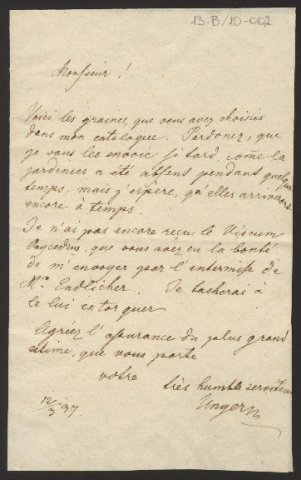 13.B/10-002
Monsieur!
Voici les graines que vous avez choisis
dans mon catalogue. Pardonez, que
je vous les envoie si tard, come la
jardinier a été absent pendant quelque
temps, mais j'espère, qu'elles arriveront
encore à temps.
Je n'ai pas encore reçu le Viscum
que vous avez eu la bonté
de m'envoyer par l'entremise de
Mr. Endlicher. Je tacherai à
le lui extorquer.
Agréez l'assurance du plus grand
estime, que vous porte
votre
très humble serviteur
Unger
12/3 37.